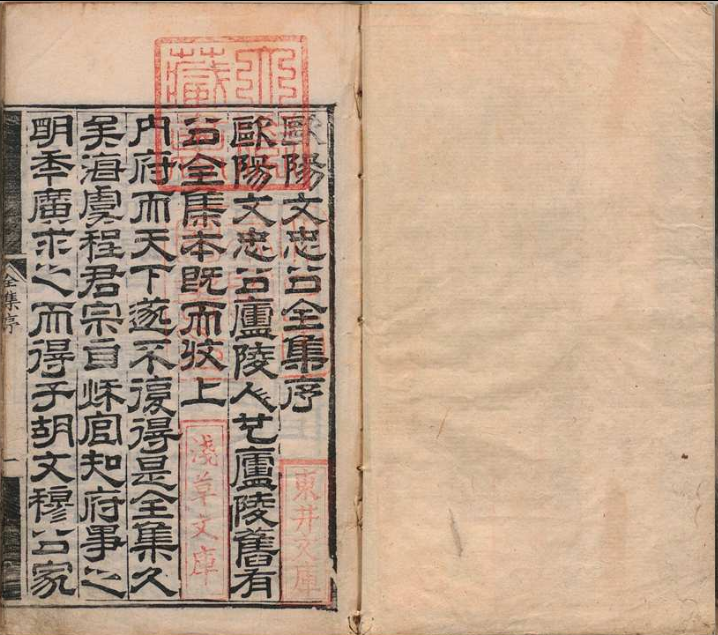 歐陽文忠公全集序
歐陽文忠公廬陵人也廬陵舊有
公全集本既而收上
內府而天下遂不復得是全集久
矣海虞程君宗自秌官知府事之
明秊廣求之而得于胡文穆公家
全集序
一
東井文庫
淺草文庫